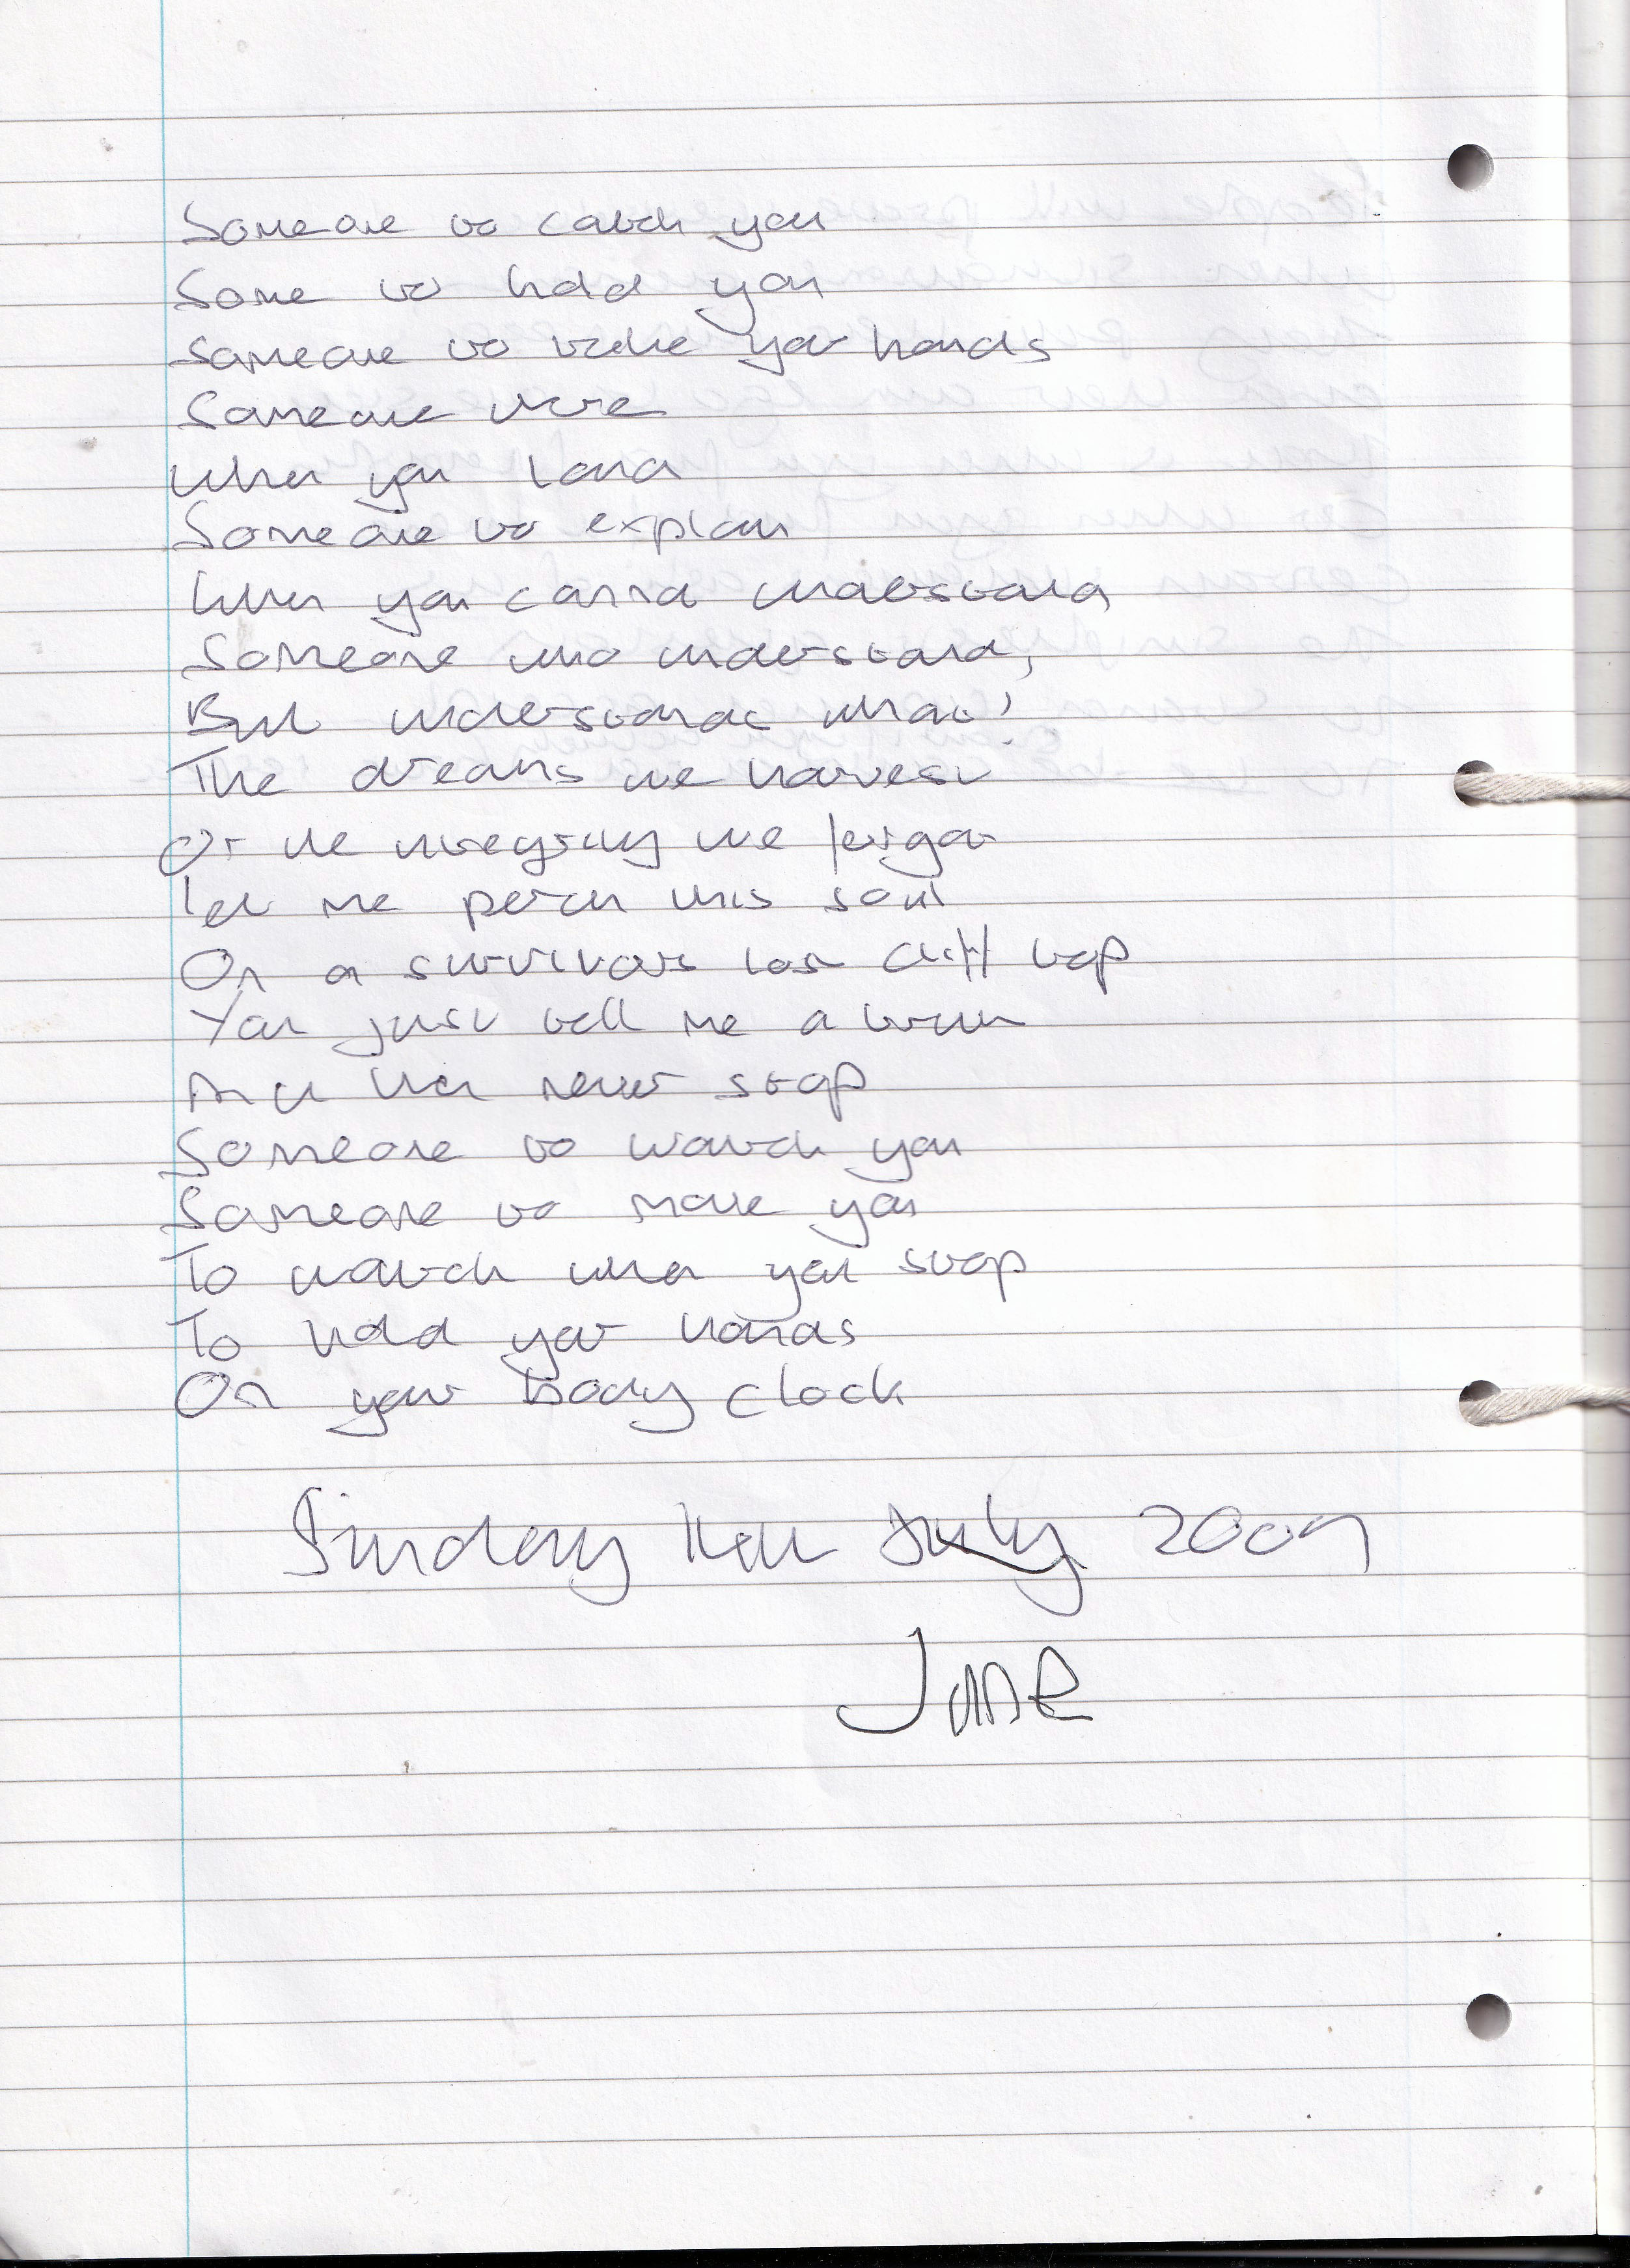 Someone to catch you
Some to hold you
Someone to take your hands
Someone there
When you land
Someone to explain
When you cannot understand
Someone who understand,
But understands what?
The dreams we harvest
Or the integrity we forgot
Let me perch this soul
On a survivors last cliff top
You just tell me a truth
And then never stop
Someone to watch you
Someone to move you
To watch when you stop
To hold your hands
On your body clock
Sunday 14th July 2009
June